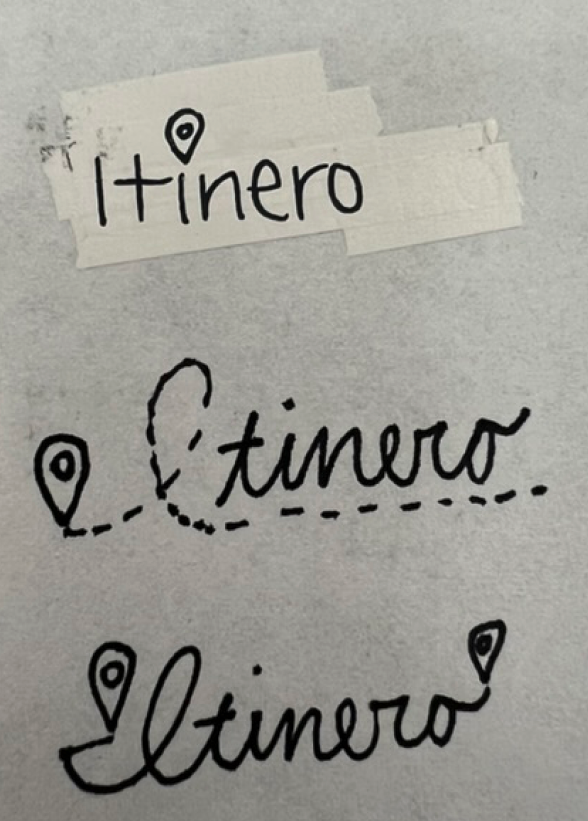 Itinero
Itinero
Itinero